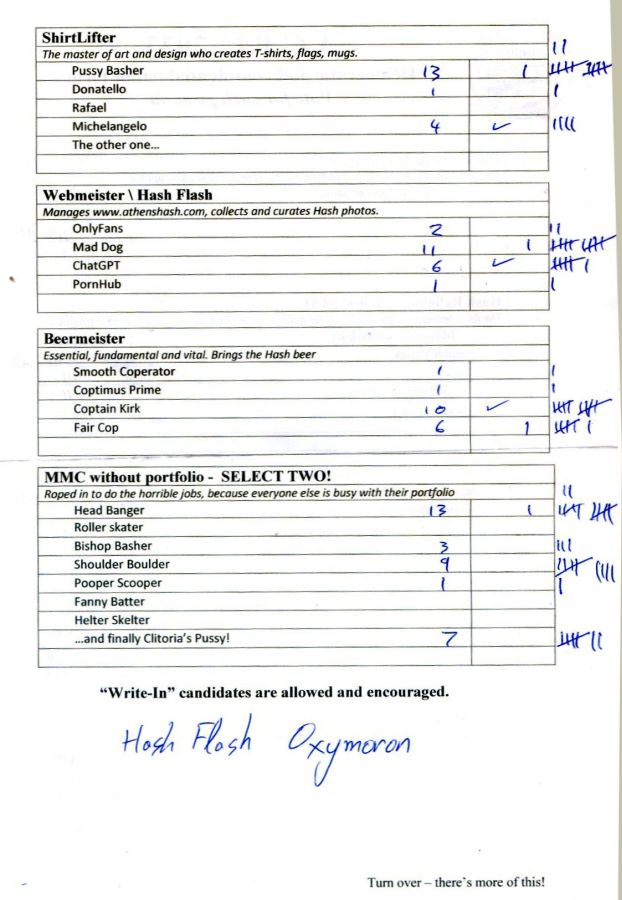 ShirtLifter
The master of art and design who creates T-shirts, flags, mugs.
Pussy Basher 13 1
Donatello 1
Rafael
Michelangelo 4 ✓
The other one...
Webmeister \ Hash Flash
Manages www.athenshash.com, collects and curates Hash photos.
OnlyFans 2
Mad Dog 11 1
ChatGPT 6 ✓
PornHub 1
Beermeister
Essential, fundamental and vital. Brings the Hash beer
Smooth Coperator 1
Coptimus Prime 1
Coptain Kirk 10 ✓
Fair Cop 6 1
MMC without portfolio - SELECT TWO!
Roped in to do the horrible jobs, because everyone else is busy with their portfolio
Head Banger 13 1
Roller skater
Bishop Basher 3
Shoulder Boulder 9
Pooper Scooper 1
Fanny Batter
Helter Skelter
...and finally Clitoria's Pussy! 7
"Write-In" candidates are allowed and encouraged.
Hash Flash Oxymoron
Turn over – there's more of this!